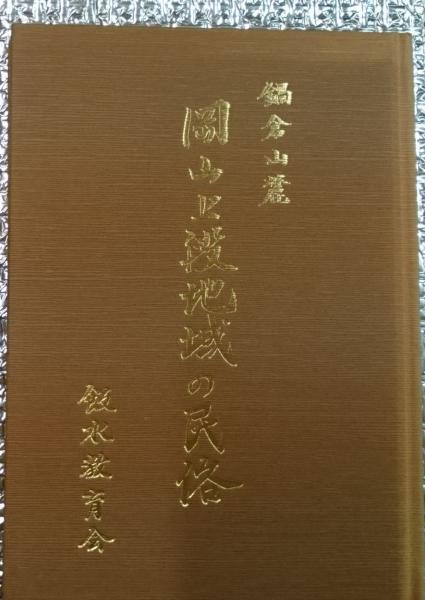 鍋倉山麓
岡山上段地域の民俗
飯水教育会